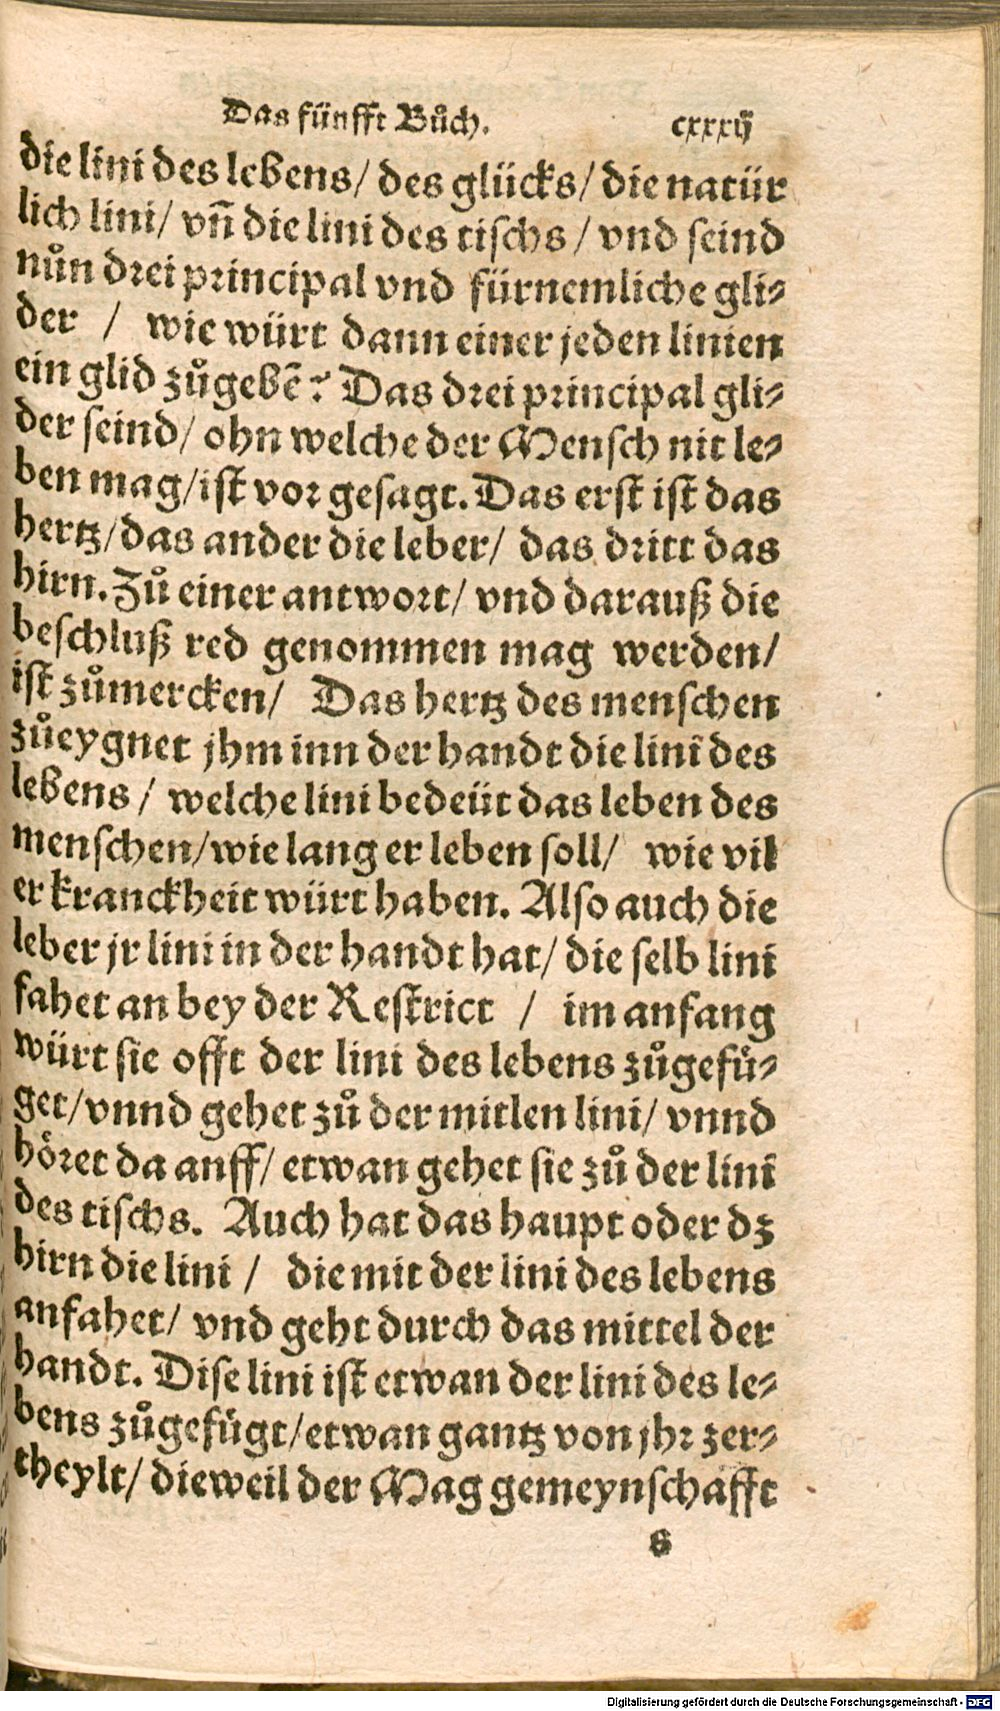 Das fünfft Bůch. cxxxij
die lini des lebens/ des glücks/ die natür
lich lini/ vñ die lini des tischs / vnd seind
nůn drei principal vnd fürnemliche gli⸗
der / wie würt dann einer jeden linien
ein glid zůgebẽ? Das drei principal gli⸗
der seind/ ohn welche der Mensch nit le⸗
ben mag/ist vor gesagt. Das erst ist das
hertz/das ander die leber/ das dritt das
hirn. Zů einer antwort/ vnd darauß die
beschluß red genommen mag werden/
ist zůmercken/ Das hertz des menschen
zůeygnet jhm inn der handt die lini des
lebens / welche lini bedeüt das leben des
menschen/wie lang er leben soll/ wie vil
er kranckheit würt haben. Also auch die
leber jr lini in der handt hat/ die selb lini
fahet an bey der Restrict / im anfang
würt sie offt der lini des lebens zůgefü⸗
get/vnnd gehet zů der mitlen lini/ vnnd
höret da anff/ etwan gehet sie zů der lini
des tischs. Auch hat das haupt oder dz
hirn die lini / die mit der lini des lebens
anfahet/ vnd geht durch das mittel der
handt. Dise lini ist etwan der lini des le⸗
bens zůgefügt/etwan gantz von jhr zer⸗
theylt/ dieweil der Mag gemeynschafft
s
Digitalisierung gefördert durch die Deutsche Forschungsgemeinschaft - DFG